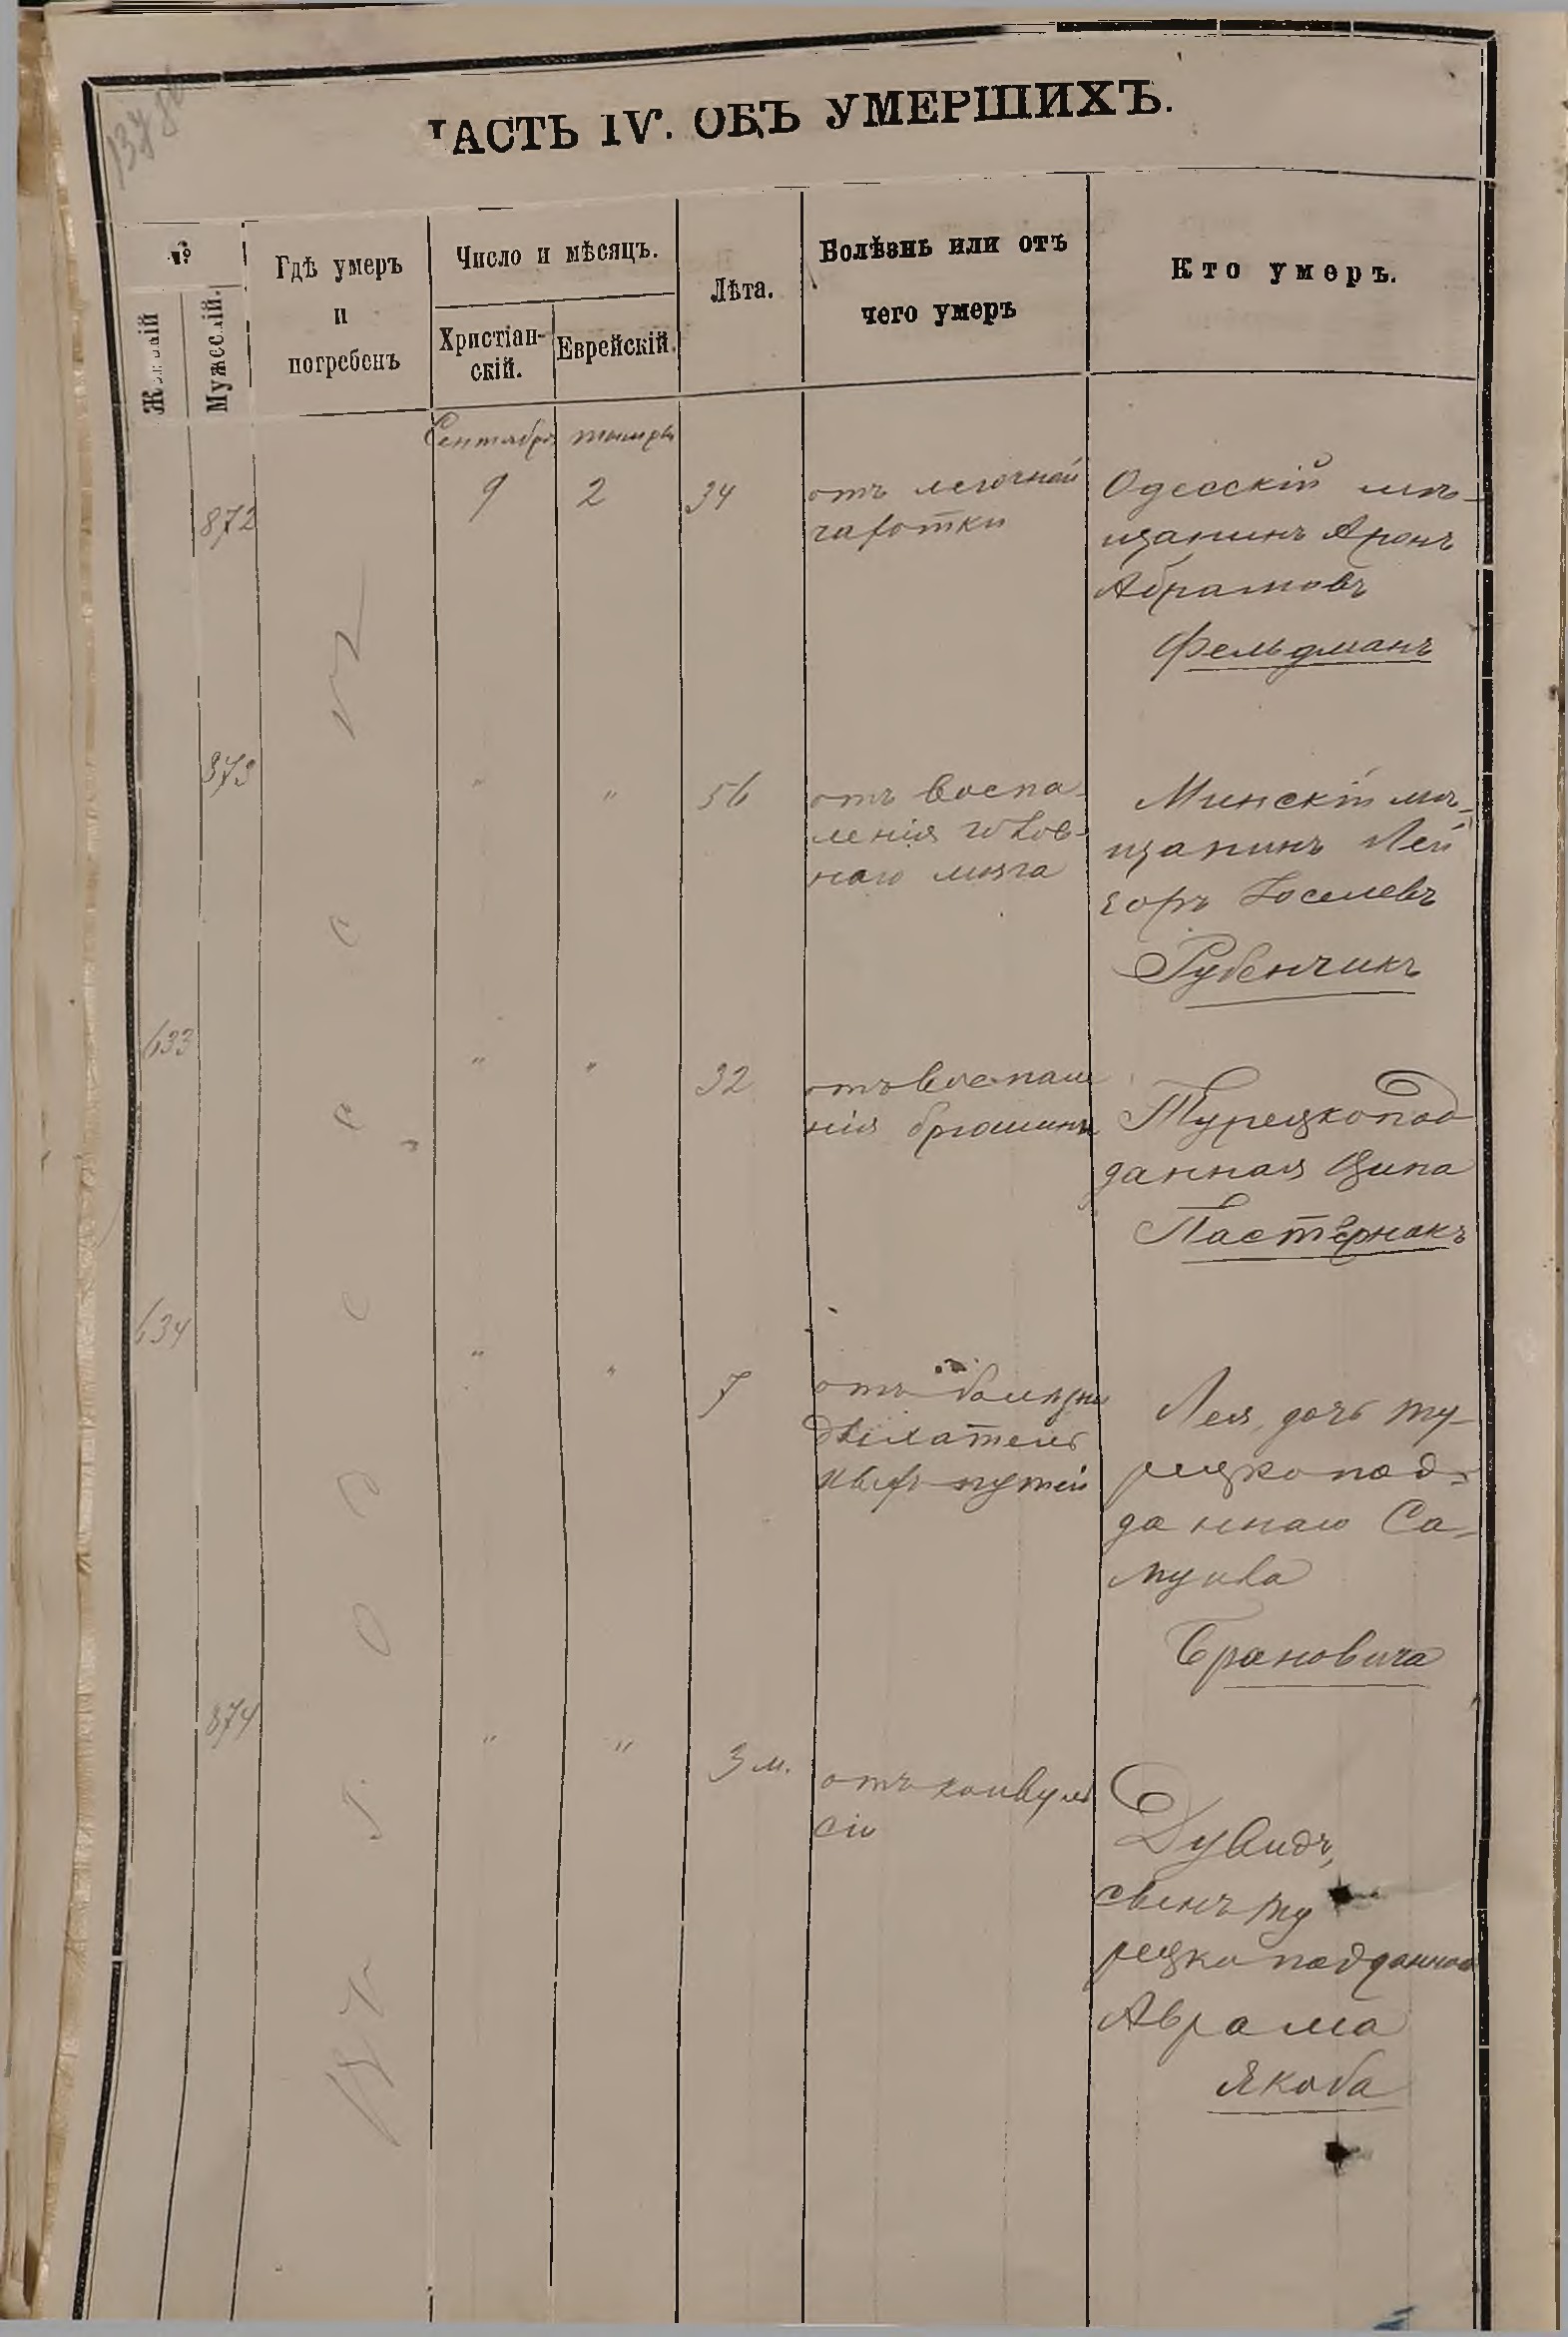 ЧАСТЬ IV. ОБЪ УМЕРШИХЪ.
№
Женскій
Мужескій.
Гдѣ умеръ
и
погребенъ
Число и мѣсяцъ.
Христіан-
скій.
Еврейскій.
Лѣта.
Болѣзнь или отъ
чего умеръ
Кто умеръ.
Сентябрь тишри
872
9
2
34
отъ легочной
чахотки
Одесскій мѣ-
щанинъ Аронъ
Абрамовъ
Фельдманъ
873
"
"
56
отъ воспа-
ленія голов-
наго мозга
Минскій мѣ-
щанинъ Лей
зоръ Іоселевъ
Рубенчикъ
633
"
"
32
отъ воспале
нія брюшины
Турецкопод
данная Ципа
Пастернакъ
634
"
"
7
отъ болѣзни
дыхатель
ныхъ путей
Лея, дочь ту-
рецкопод-
даннаго Са-
муила
Брановича
874
"
"
3 м.
отъ конвуль
сій
Дувидъ,
сынъ ту
рецкоподданнаго
Аврама
Якоба